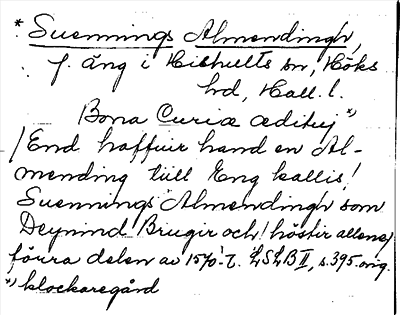 * Suennings Almendingh,
f. äng i Hishults sn, Höks
hd, Hall. l.
Bona Curiæ ædituj *)
/End haffuir hand en Al-
mending till Eng kallis!
Suennings Almendingh som
Deynind! Brugir och! höstir allene/
förra delen av 1570-t. LSLB II, s. 395. orig.
*) klockaregård